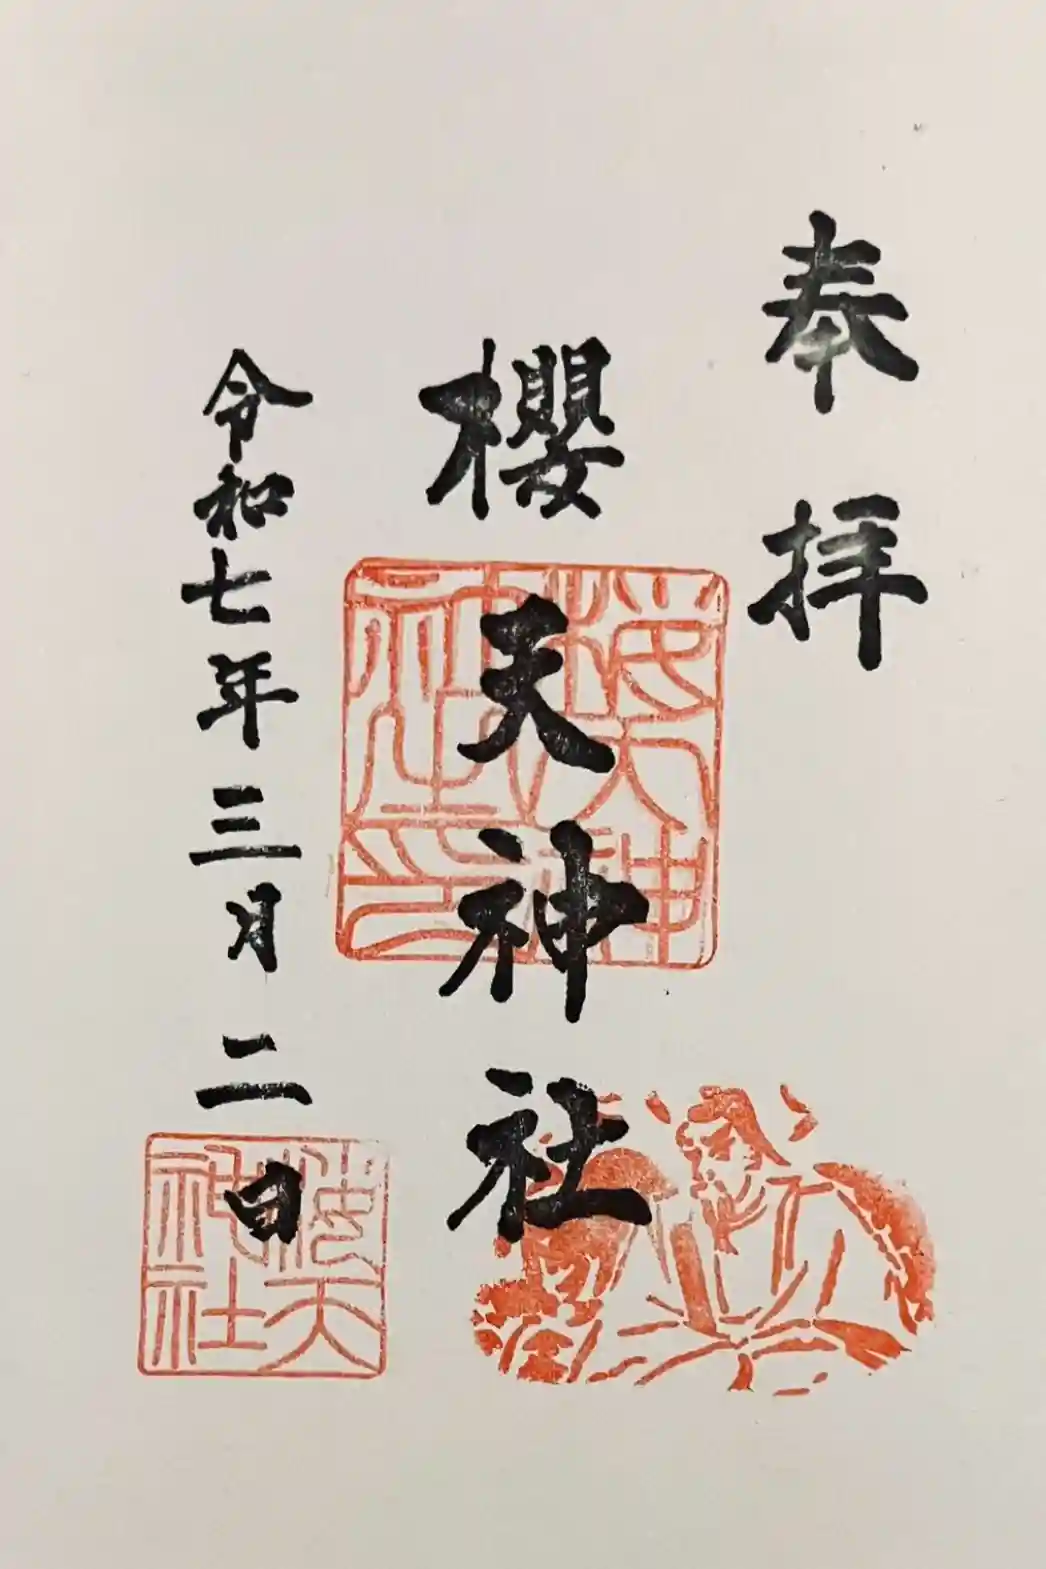 奉拝
櫻天神社
櫻天神社印
令和七年三月二日
櫻天神社